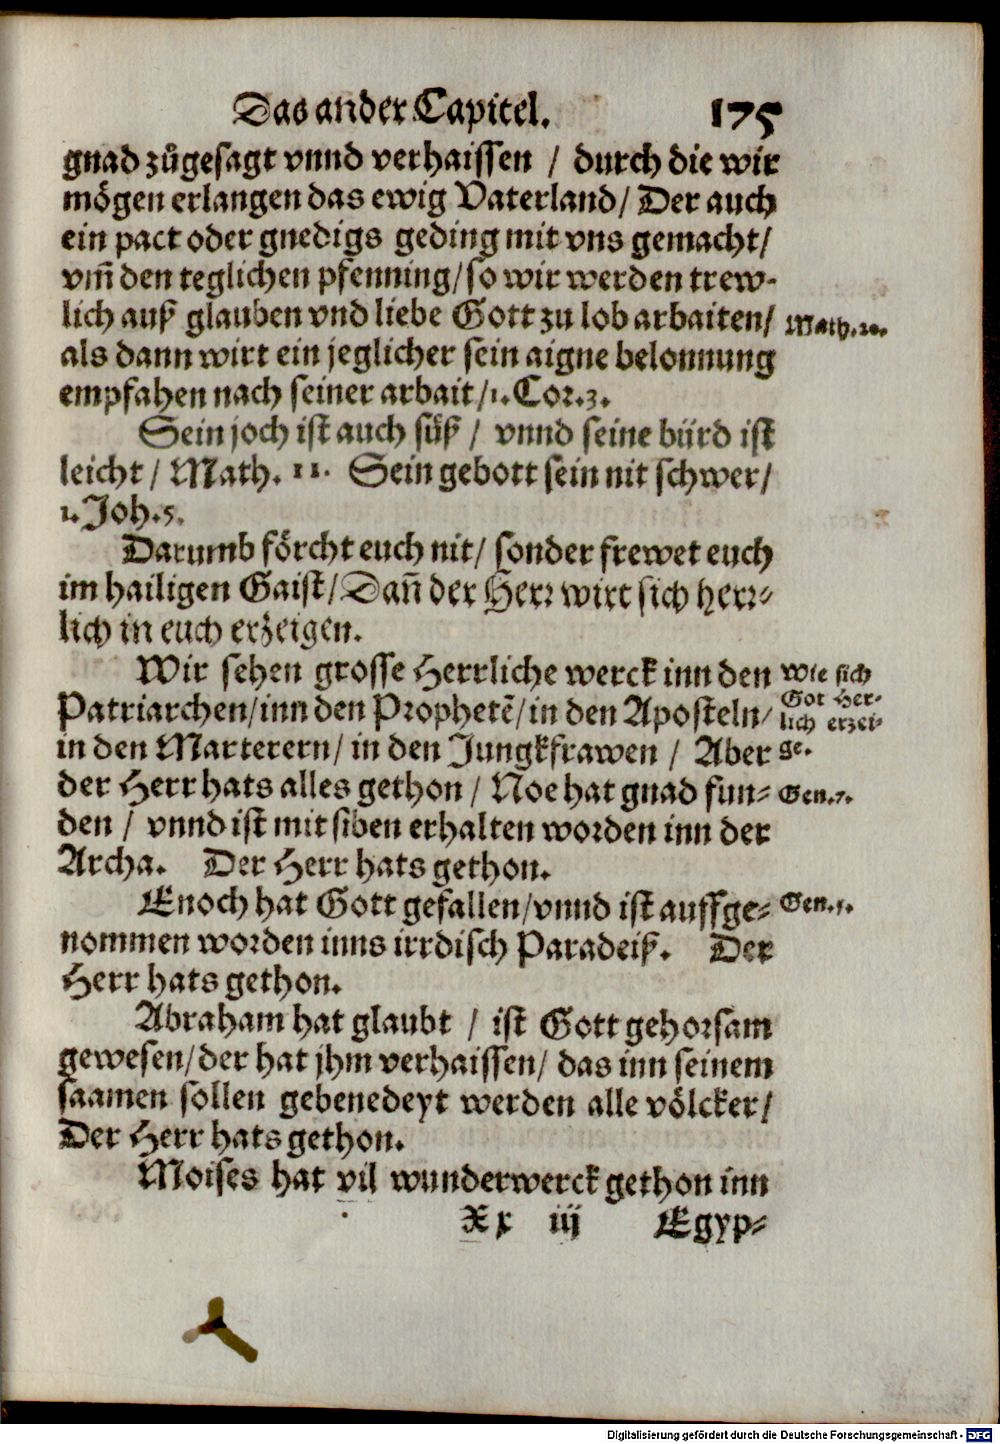 Das ander Capitel. 175
gnad zůgesagt vnnd verhaissen / durch die wir
mögen erlangen das ewig Vaterland/ Der auch
ein pact oder gnedigs geding mit vns gemacht/
vm̃ den teglichen pfenning/so wir werden trew-
lich auß glauben vnd liebe Gott zu lob arbaiten/
Math.20.
als dann wirt ein jeglicher sein aigne belonnung
empfahen nach seiner arbait/1.Cor.3.
Sein joch ist auch süß / vnnd seine bürd ist
leicht / Math. 11. Sein gebott sein nit schwer/
1.Joh.5.
Darumb förcht euch nit/ sonder frewet euch
im hailigen Gaist/Dañ der Herr wirt sich herr-
lich in euch erzeigen.
Wir sehen grosse Herrliche werck inn den
Patriarchen/inn den Prophetē/in den Aposteln/
in den Marterern/ in den Jungkfrawen / Aber
Wie sich
Got Her-
lich erzei-
ge.
der Herr hats alles gethon / Noe hat gnad fun-
Gen.7.
den / vnnd ist mit siben erhalten worden inn der
Archa. Der Herr hats gethon.
Enoch hat Gott gefallen/vnnd ist auffge-
Gen.5.
nommen worden inns irrdisch Paradeiß. Der
Herr hats gethon.
Abraham hat glaubt / ist Gott gehorsam
gewesen/der hat jhm verhaissen/ das inn seinem
saamen sollen gebenedeyt werden alle völcker/
Der Herr hats gethon.
Moises hat vil wunderwerck gethon inn
Xx iij Egyp-
Digitalisierung gefördert durch die Deutsche Forschungsgemeinschaft - DFG